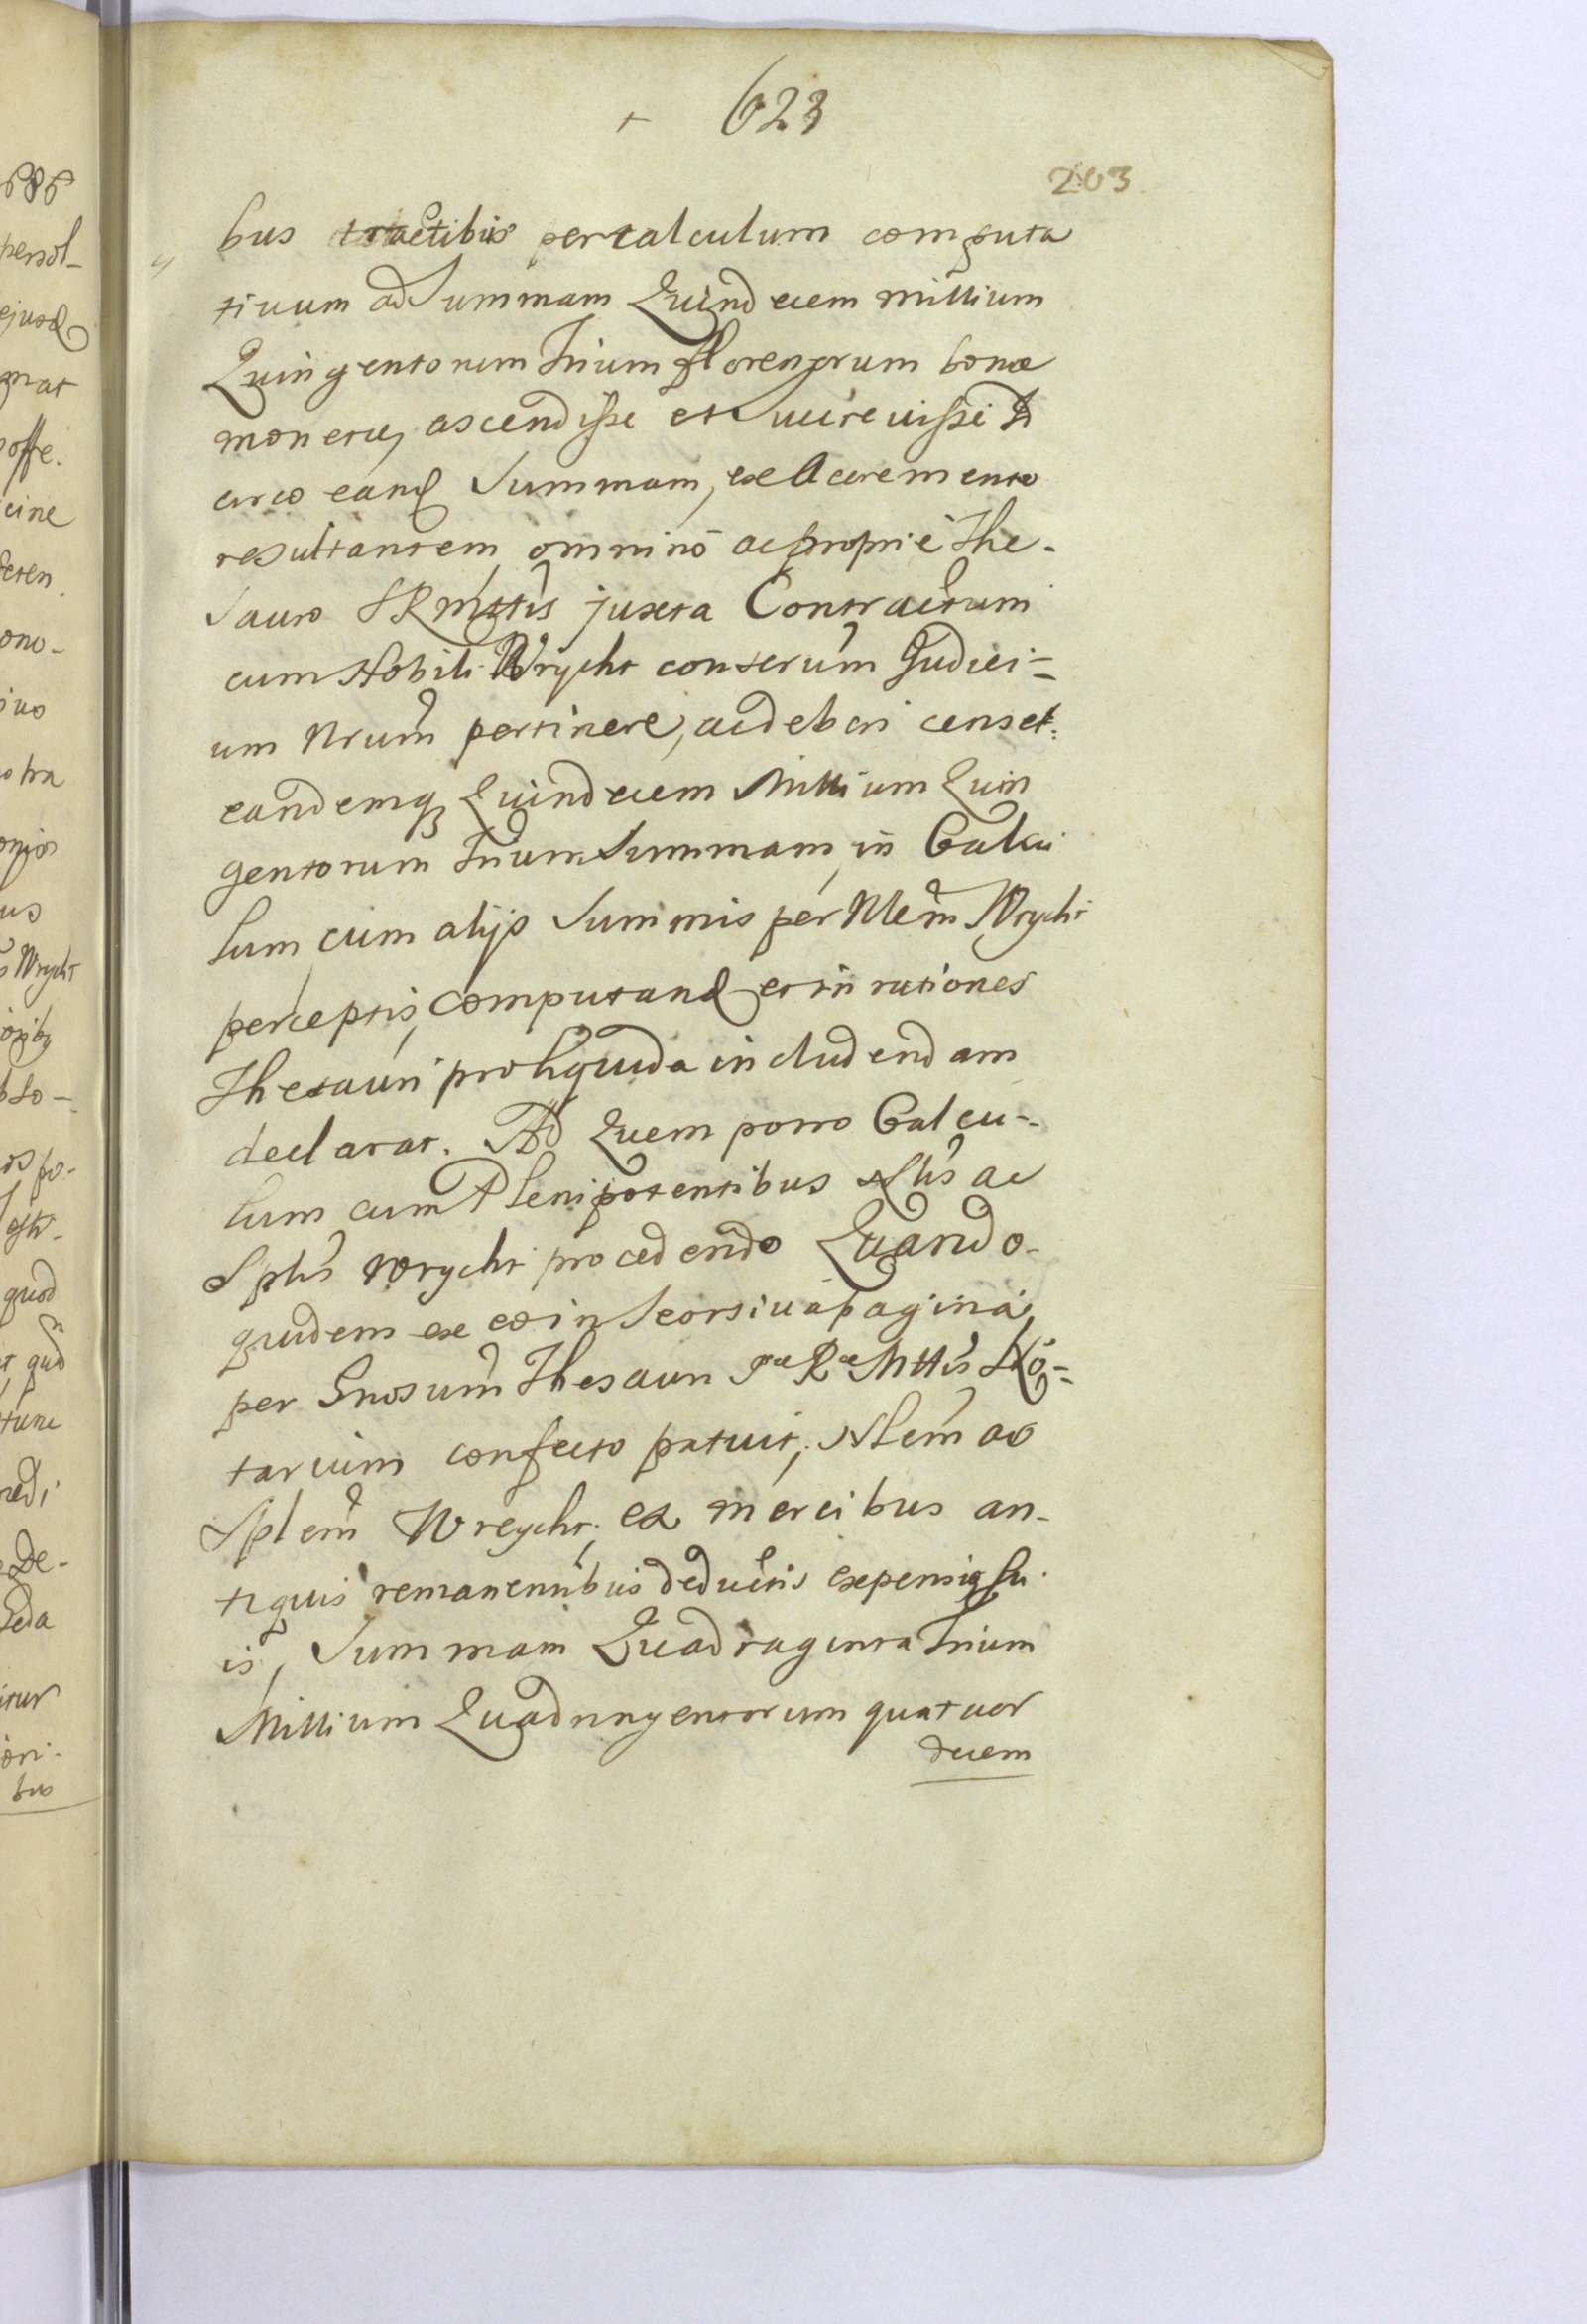 + 623
203
bus tractibus per calculum computa
tiuum ad Summam Quindecem millium
Quingentorum Trium florenorum bonæ
monetæ, ascendisse et succrevisse Id
circo eand Summam, ex Accremento
resultantem, omninò ac propriè The-
sauro SRMttis juxta Contractum
cum Nobili Wrycht consertum Judici-
um Nrum pertinere, ac deberi censet:
eandemq Quindecem Millium Quin
gentorum Trium Summam, in Calcu
lum cum alijs Summis per Nlem Wrycht
perceptis, computand et in rationes
Thesauri pro liquida includendam
declarat. Ad Quem porro Calcu-
lum cum Plenipotentibus Nlis ac
Splis Wrycht procedendo Quando-
quidem ex eo in Seorsiva pagina,
per Gnosum Thesauri Sæ Ræ Mttis No-
tarium confecto patuit, Nlem ac
Splem Wreycht, ex mercibus an-
tiquis remanentibus deductis expensis su
is, Summam Quadraginta Trium
Millium Quadringentorum quatuor
decem